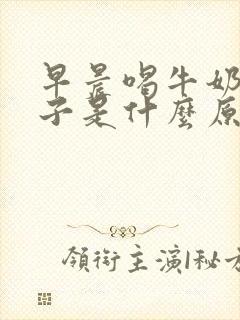 早晨喝牛奶
子是什麼原
領銜主演1秘方